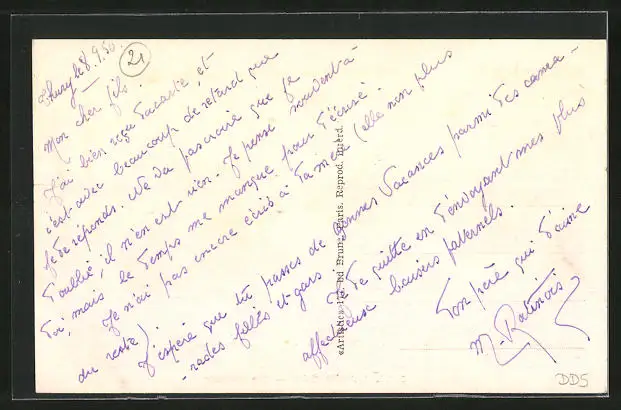 Thury le 8.9.50.
21
Mon cher fils.
J'ai bien reçu ta carte et
c'est avec beaucoup de retard que
je te réponds. Ne va pas croire que je
t'oublie, il n'en est rien. Je pense souvent à
toi, mais le temps me manque pour t'écrire.
Je n'ai pas encore écrit à ta mère (elle non plus
du reste)
J'espère que tu passes de bonnes vacances parmi tes cama-
-rades filles et gars
Je te quitte en t'envoyant mes plus
affectueux baisers paternels.
Ton père qui t'aime
M. Ratinois
«Artistica» Ed Brun, Paris. Reprod. Interd.
DDS